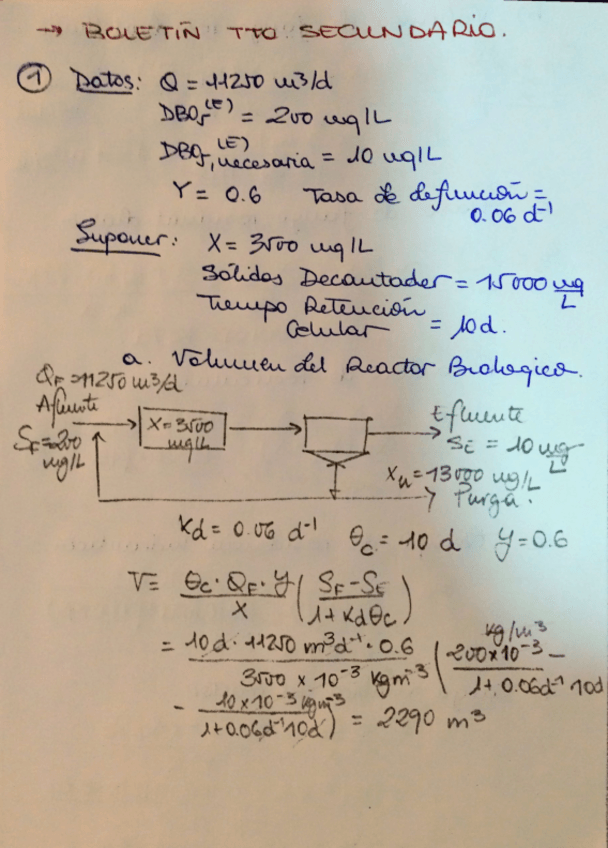 → BOLETÍN TTO SECUNDARIO.
① Datos: Q = 11250 m³/d
DBO₅⁽ᴱ⁾ = 200 mg/L
DBO₅,necesaria⁽ᴱ⁾ = 10 mg/L
Y = 0.6 Tasa de defunción =
0.06 d⁻¹
Suponer: X = 3500 mg/L
Sólidos Decantador = 15000 mg/L
Tiempo Retención
Celular = 10 d.
a. Volumen del Reactor Biologico.
Q_F = 11250 m³/d
Afluente
S_F = 200 mg/L
X = 3500 mg/L
Efluente
S_E = 10 mg/L
X_u = 13000 mg/L
Purga.
Kd = 0.06 d⁻¹ θc = 10 d Y = 0.6
V = θc · Q_F · Y / X ( S_F - S_E / 1 + Kd θc )
= 10 d · 11250 m³d⁻¹ · 0.6 / 3500 × 10⁻³ kg m⁻³ ( 200 × 10⁻³ kg/m³ / 1 + 0.06 d⁻¹ 10d -
- 10 × 10⁻³ kg m⁻³ / 1 + 0.06 d⁻¹ 10d ) = 2290 m³